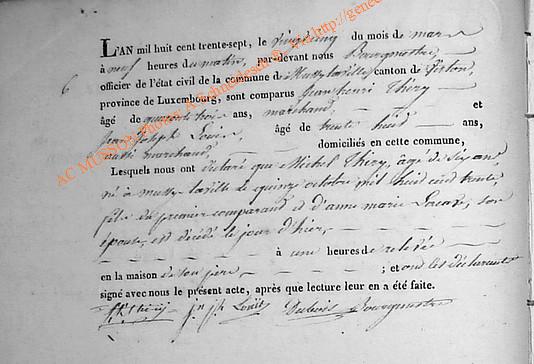 6
L'AN mil huit cent trente-sept, le vingt cinq du mois de mars
à neuf heures du matin, par-devant nous Bourgmestre
officier de l'état civil de la commune de Mussy la ville canton de
province de Luxembourg, sont comparus Jean henri Thiry
âgé de quarante trois ans, marchand, et
Jean Joseph Louis âgé de trente huit ans,
aussi marchand, domiciliés en cette commune,
Lesquels nous ont déclaré que Michel Thiry, âgé de six ans
né à Mussy la ville le quinze octobre mil huit cent trente,
fils du premier comparant et d'anne marie son
épouse, est décédé le jour d'hier,
à une heures de relevée
en la maison de son père, ; et ont les déclarants
signé avec nous le présent acte, après que lecture leur en a été faite.
Jh Thiry Jn Jph Louis Dubois Bourgmestre